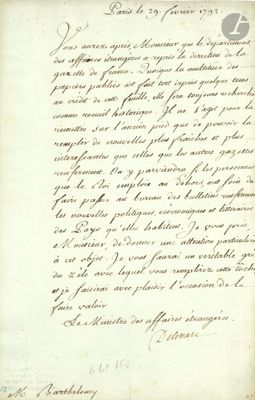 Paris le 29. fevrier 1792.
Vous aurez appris, Monsieur que le departement
des affaires étrangères a repris la direction de la
gazette de france. Quoique la multitude des
papiers publics ait fait tort depuis quelque tems
au crédit de cette feuille, elle sera toujours recherchée
comme recueil historique. Il ne s'agit pour la
remettre sur l'ancien pied que de pouvoir la
remplir de nouvelles plus fraiches et plus
interessantes que celles que les autres gazettes
renferment. On y parviendra si les personnes
que le Roi emploie au dehors, ont soin de
faire passer au bureau des bulletins renfermant
les nouvelles politiques, économiques et litteraires
des Pays qu'elles habitent. Je vous prie,
Monsieur, de donner une attention particuliere
à cet objet. Je vous saurai un veritable gré
du zèle avec lequel vous remplirez cette tâche
et je saisirai avec plaisir l'occasion de le
faire valoir
Le Ministre des affaires étrangères.
Delessart
M. Barthelemy